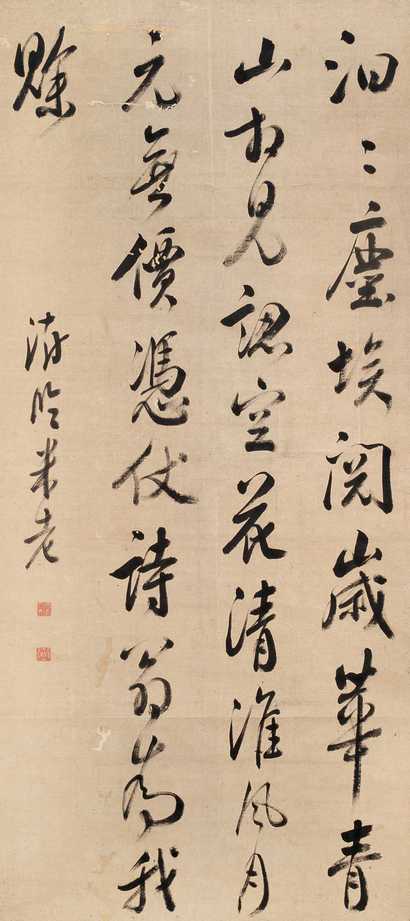 汩〻塵埃閱歲華青
山相見認空花清淮風月
元無價憑仗詩翁為我
賒
臨米老